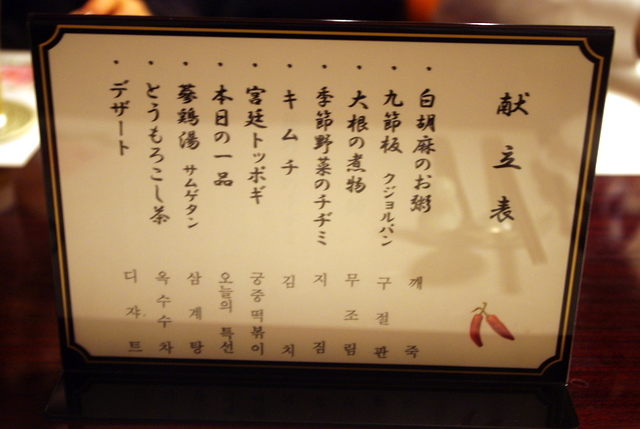 献立表
・白胡麻のお粥 깨죽
・九節板 クジョルパン 구절판
・大根の煮物 무조림
・季節野菜のチヂミ 지짐
・キムチ 김치
・宮廷トッポギ 궁중떡볶이
・本日の一品 오늘의 특선
・蔘鶏湯 サムゲタン 삼계탕
・とうもろこし茶 옥수수차
・デザート 디쟈트